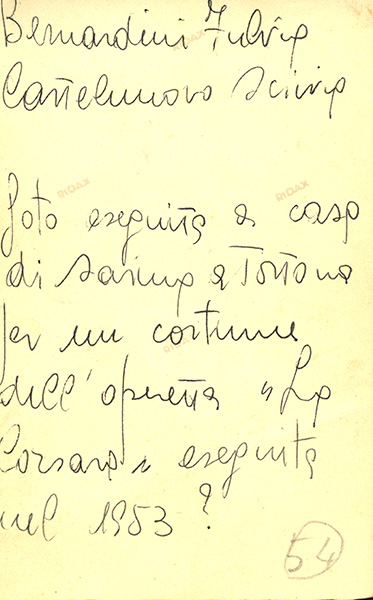 Bernardini Fulvia
Castelnuovo Scrivia
foto eseguita a casa
di Sarina a Tortona
per un costume
dell'operetta "La
Corsara" eseguita
nel 1953?
54
RIDAX
RIDAX
RIDAX
RIDAX
RIDAX